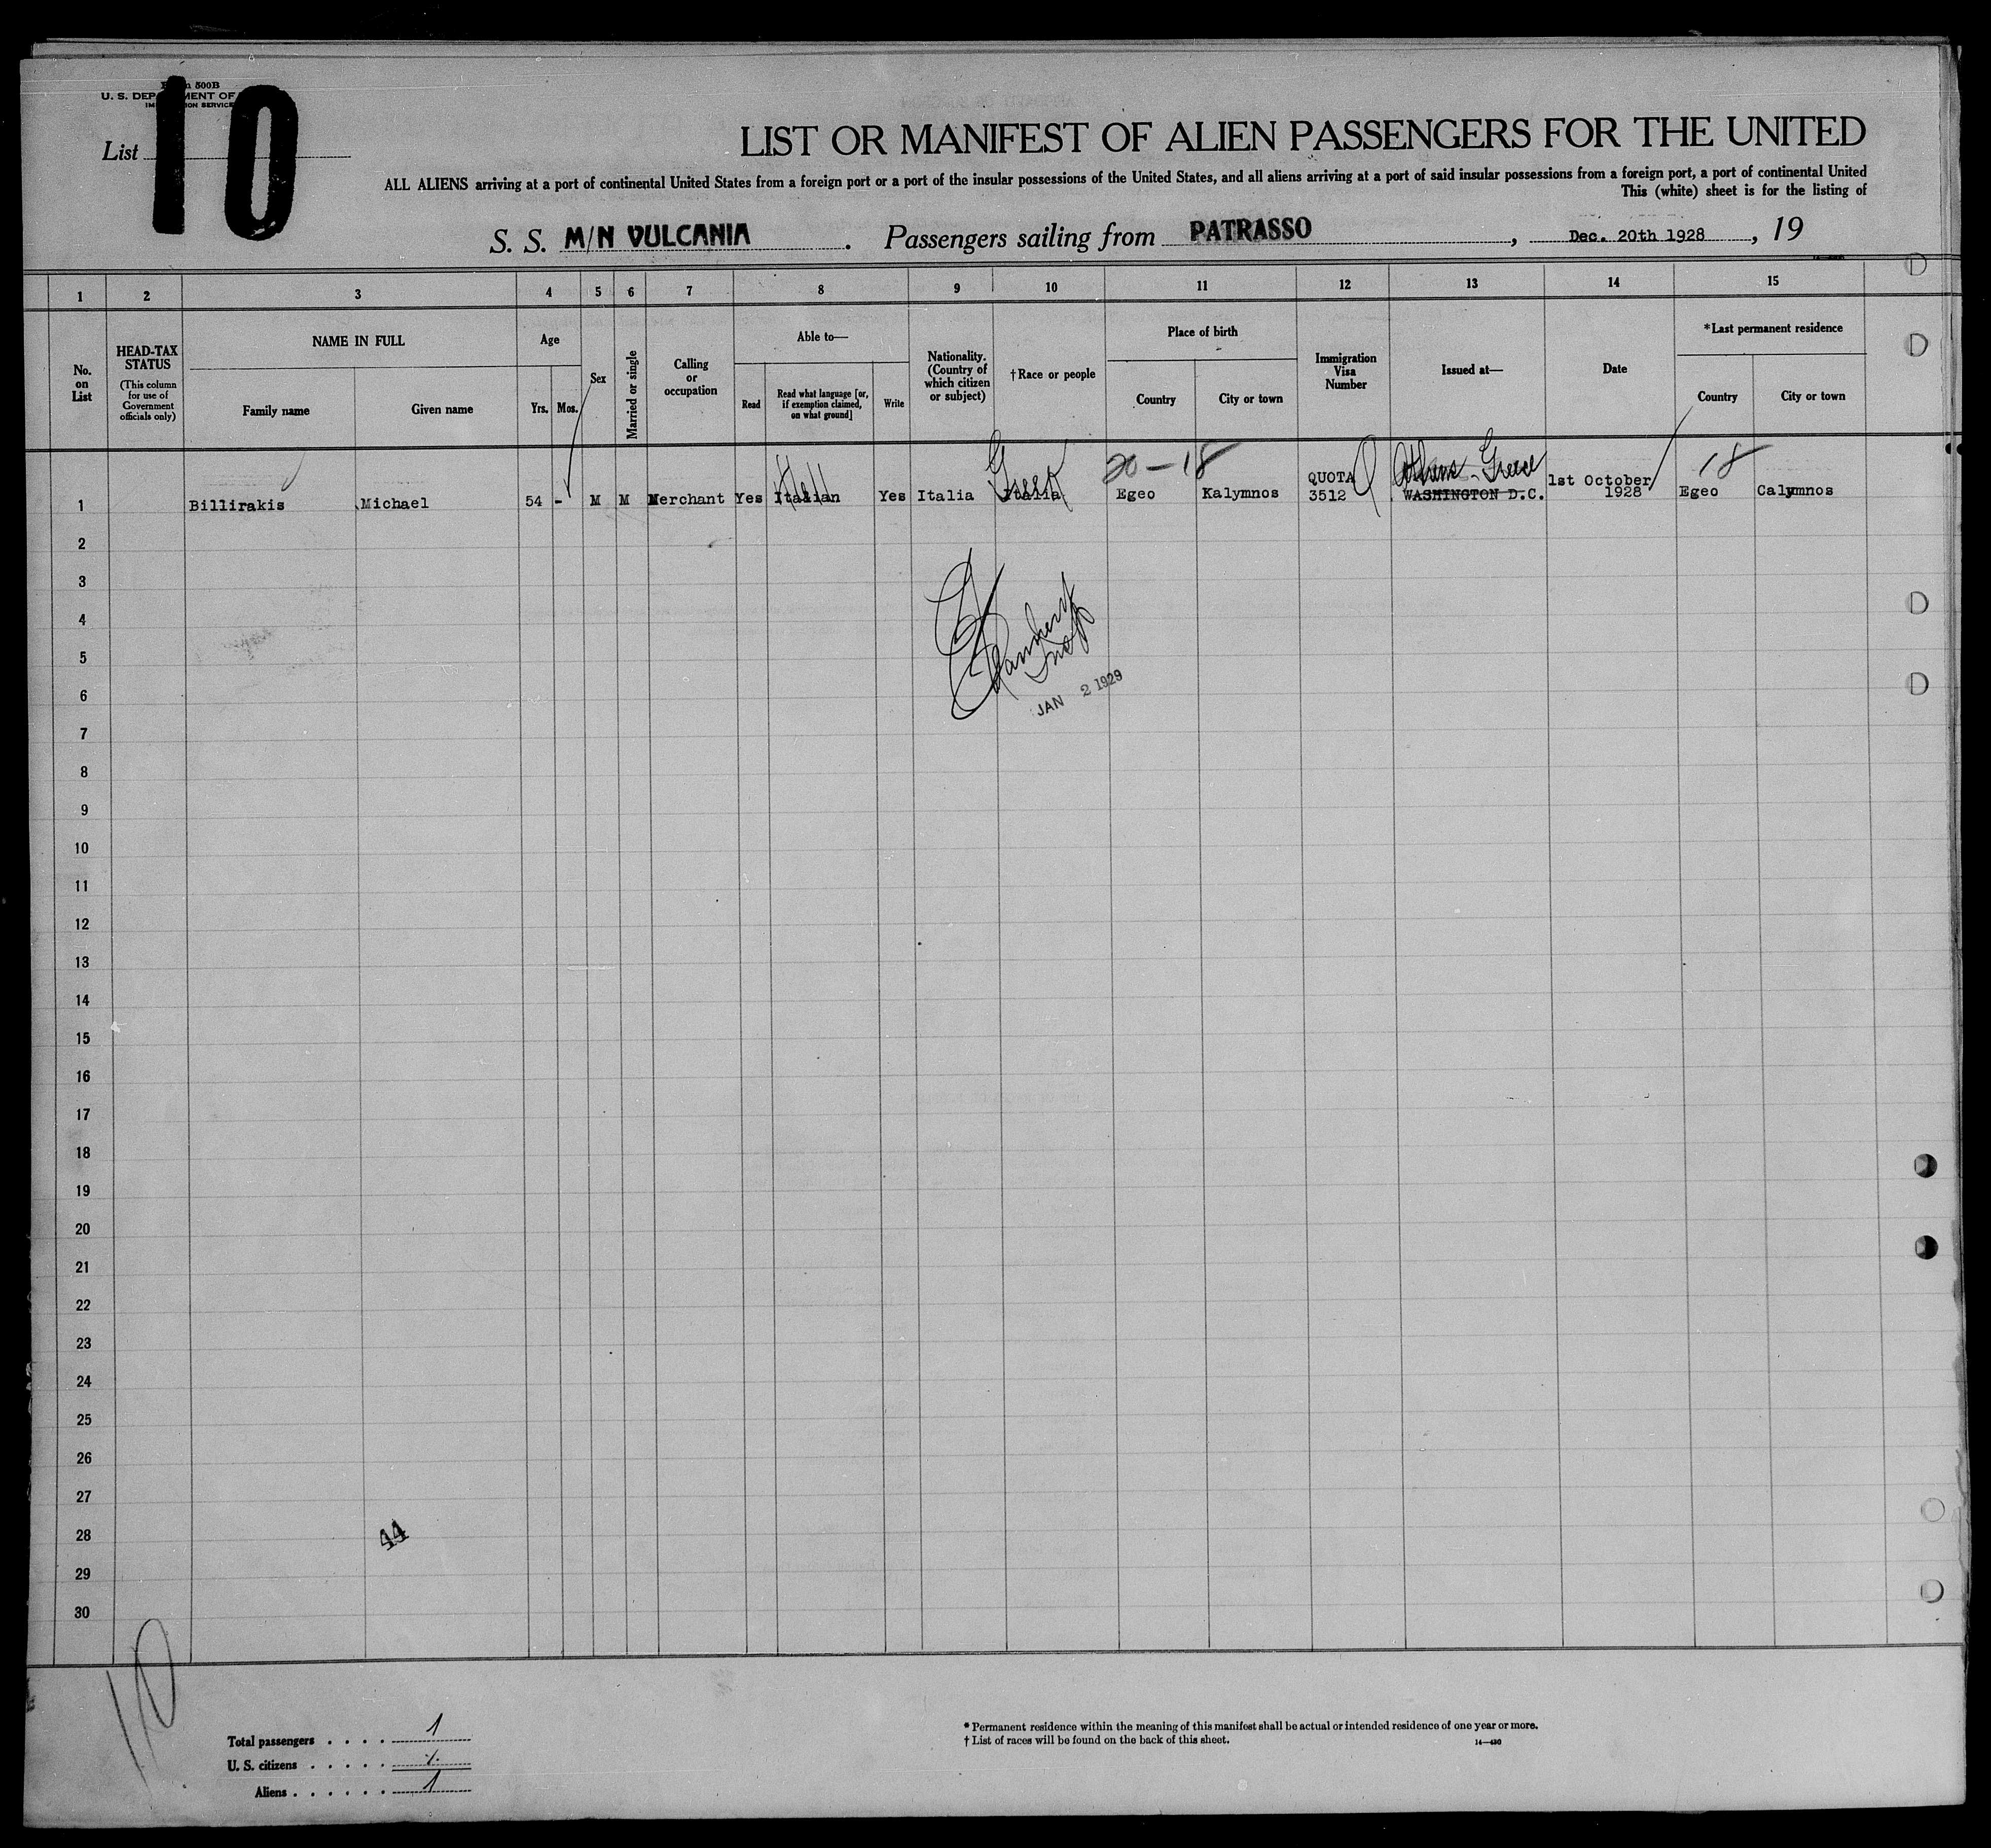 Form 500B
U. S. DEPARTMENT OF
IMMIGRATION SERVICE
List 10
LIST OR MANIFEST OF ALIEN PASSENGERS FOR THE UNITED
ALL ALIENS arriving at a port of continental United States from a foreign port or a port of the insular possessions of the United States, and all aliens arriving at a port of said insular possessions from a foreign port, a port of continental United
This (white) sheet is for the listing of
S. S. M/N VULCANIA . Passengers sailing from PATRASSO , Dec. 20th 1928 , 19
1 2 3 4 5 6 7 8 9 10 11 12 13 14 15
No. on List
HEAD-TAX STATUS
(This column for use of Government officials only)
NAME IN FULL
Family name
Given name
Age
Yrs.
Mos.
Sex
Married or single
Calling or occupation
Able to—
Read
Read what language [or, if exemption claimed, on what ground]
Write
Nationality. (Country of which citizen or subject)
†Race or people
Place of birth
Country
City or town
Immigration Visa Number
Issued at—
Date
*Last permanent residence
Country
City or town
Greek 20-18 Athens - Greece 18
1 Billirakis Michael 54 - M M Merchant Yes Italian Yes Italia Italia Egeo Kalymnos QUOTA 3512 WASHINGTON D.C. 1st October 1928 Egeo Calymnos
2
3
4
5
Insp
6
JAN 2 1929
7
8
9
10
11
12
13
14
15
16
17
18
19
20
21
22
23
24
25
26
27
28
44
29
30
10
Total passengers . . . . 1
U. S. citizens . . . . .
Aliens . . . . . . 1
* Permanent residence within the meaning of this manifest shall be actual or intended residence of one year or more.
† List of races will be found on the back of this sheet.
14—430